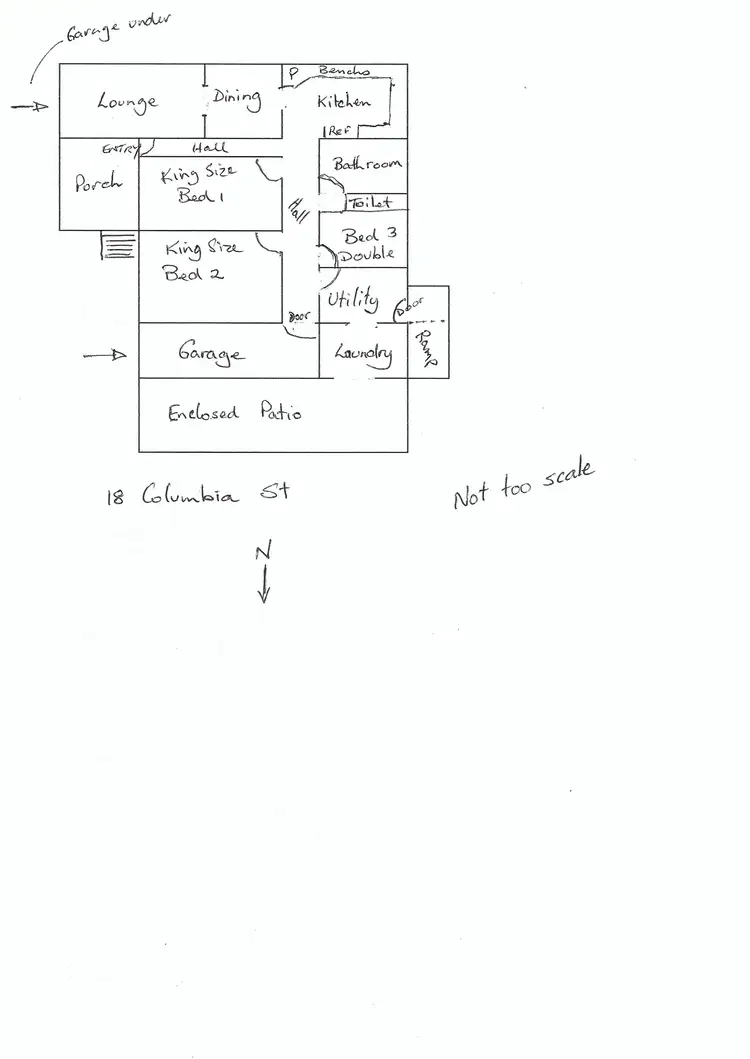 Garage under
P Benchs
Lounge
Dining
Kitchen
Ref
ENTRY
Hall
Bathroom
Porch
King Size
Bed 1
Hall
Toilet
Bed 3
Double
King Size
Bed 2
Utility
Door
Door
Ramp
Garage
Laundry
Enclosed Patio
18 Columbia St
Not too scale
N